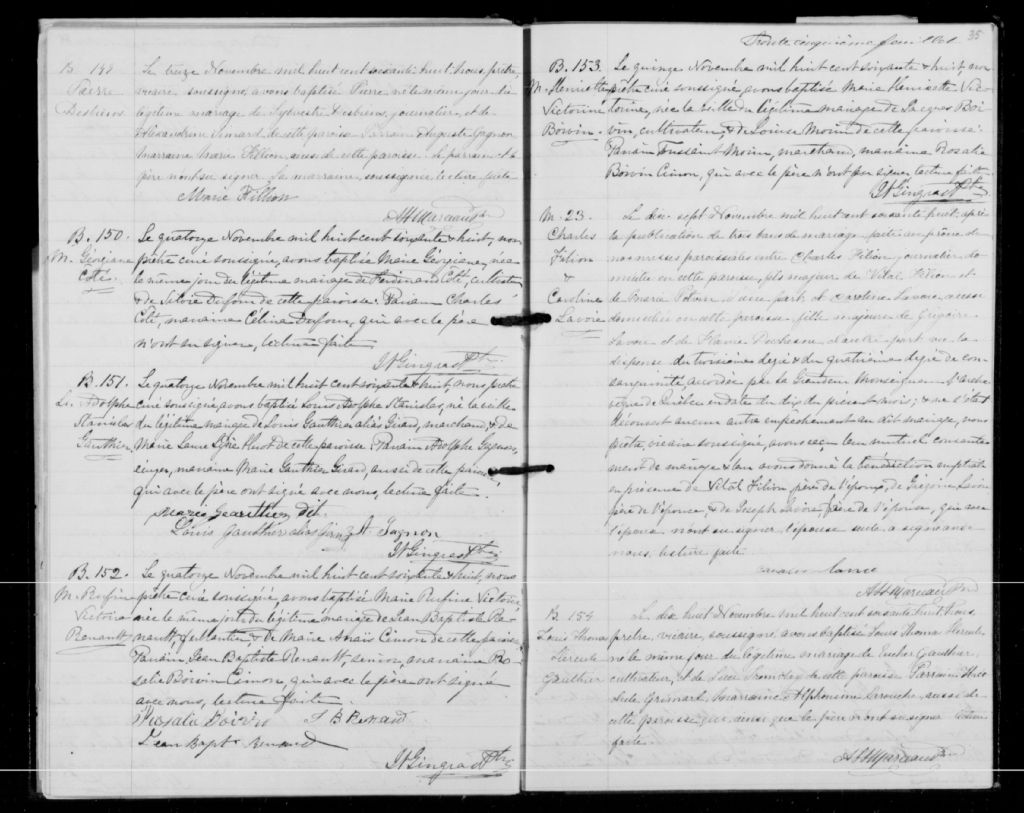 B 149
Pierre
Desbiens
Le treize Novembre mil huit cent soixante huit, Nous, prêtre,
vicaire soussigné, avons baptisé Pierre, né le même jour du
légitime mariage de Sylvestre Desbiens, journalier, et de
Alexandrine Simard de cette paroisse. Parrain Auguste Gagnon
marraine Marie Fillion aussi de cette paroisse. le parrain & le
père n'ont su signer. La marraine, soussignée, lecture faite
Marie Fillion
B. 150.
M. Géorgiane
Coté.
Le quatorze Novembre mil huit cent soixante & huit, nous
prêtre curé soussigné, avons baptisé Marie Géorgiane, née
le même jour du légitime mariage de Ferdinand Coté, cultivateur
& de Dufour de cette paroisse. Parrain Charles
Coté, marraine Célina Dufour, qui avec le père
n'ont su signer, lecture faite
Gingras Ptre
B. 151.
Ls. Adolphe
Stanislas
Gauthier
Le quatorze Novembre mil huit cent soixante & huit, nous prêtre
curé soussigné, avons baptisé Louis Adolphe Stanislas, né la veille
du légitime mariage de Louis Gauthier alias Girard, marchand, & de
Marie Huot de cette paroisse. Parrain Adolphe Gagnon,
marraine Marie Gauthier Girard, aussi de cette paroisse,
qui avec le père ont signé avec nous, lecture faite.
Marie Gauthier dit
Louis Gauthier alias Girard A. Gagnon
Gingras Ptre
B. 152.
M. Rufine
Victoria
Renault
Le quatorze Novembre mil huit cent soixante & huit, nous
prêtre curé soussigné, avons baptisé Marie Rufine Victoria,
née le même jour du légitime mariage de Jean Baptiste Re-
nault, ferblantier, & de Marie Anaïs Cimon de cette paroisse
Parrain Jean Baptiste Renault, senior, marraine Ro-
salie Boivin Cimon, qui avec le père ont signé
avec nous, lecture faite.
Rosalie Boivin J B Renaud
Jean Bapt. Renaud
Gingras Ptre
35
Trente cinquième
B. 153
M. Henriette
Victorine
Boivin.
Le quinze Novembre mil huit cent soixante & huit, nous
prêtre curé soussigné, avons baptisé Marie Henriette Vic-
torine, née la veille du légitime mariage de Jacques Boi-
vin, cultivateur, & de Louise Morin de cette paroisse.
Parrain Toussaint Morin, marchand, marraine Rosalie
Boivin Cimon, qui avec le père n'ont pu signer, lecture faite
Gingras Ptre
M. 23.
Charles
Filion
&
Caroline
Lavoie
Le dix sept Novembre mil huit cent soixante huit, après
la publication de trois bans de mariage faite au prône de
nos messes paroissiales entre Charles Filion, journalier do-
micilié en cette paroisse, fils majeur de Vital Filion et
de Marie d'une part et Caroline Lavoie, aussi
domiciliée en cette paroisse fille majeure de Grégoire
Lavoie et de Duchesne d'autre part vu la
dispense du troisième degré & du quatrième degré de con-
sanguinité accordée par Sa Grandeur Monseigneur l'arche-
vêque de Québec en date du dix du présent mois; & ne s'étant
découvert aucun autre empêchement au dit mariage, nous
prêtre vicaire soussigné, avons reçu leur mutuel consente-
ment de mariage & leur avons donné la bénédiction nuptiale
en présence de Vital Filion père de l'époux, de Grégoire Lavoie
père de l'épouse, & de Joseph Lavoie frère de l'épouse, qui avec
l'époux n'ont su signer, l'épouse seule a signé avec
nous, lecture faite.
B 154
Louis Thomas
Hercule
Gauthier
Le dix huit Novembre mil huit cent soixante huit Nous
prêtre, vicaire, soussigné, avons baptisé Louis Thomas Hercule
né le même jour du légitime mariage de Gauthier,
cultivateur, & de Tremblay de cette paroisse. Parrain
Marraine Alphonsine Larouche, aussi de
cette paroisse qui, ainsi que le père n'ont su signer lecture
faite.